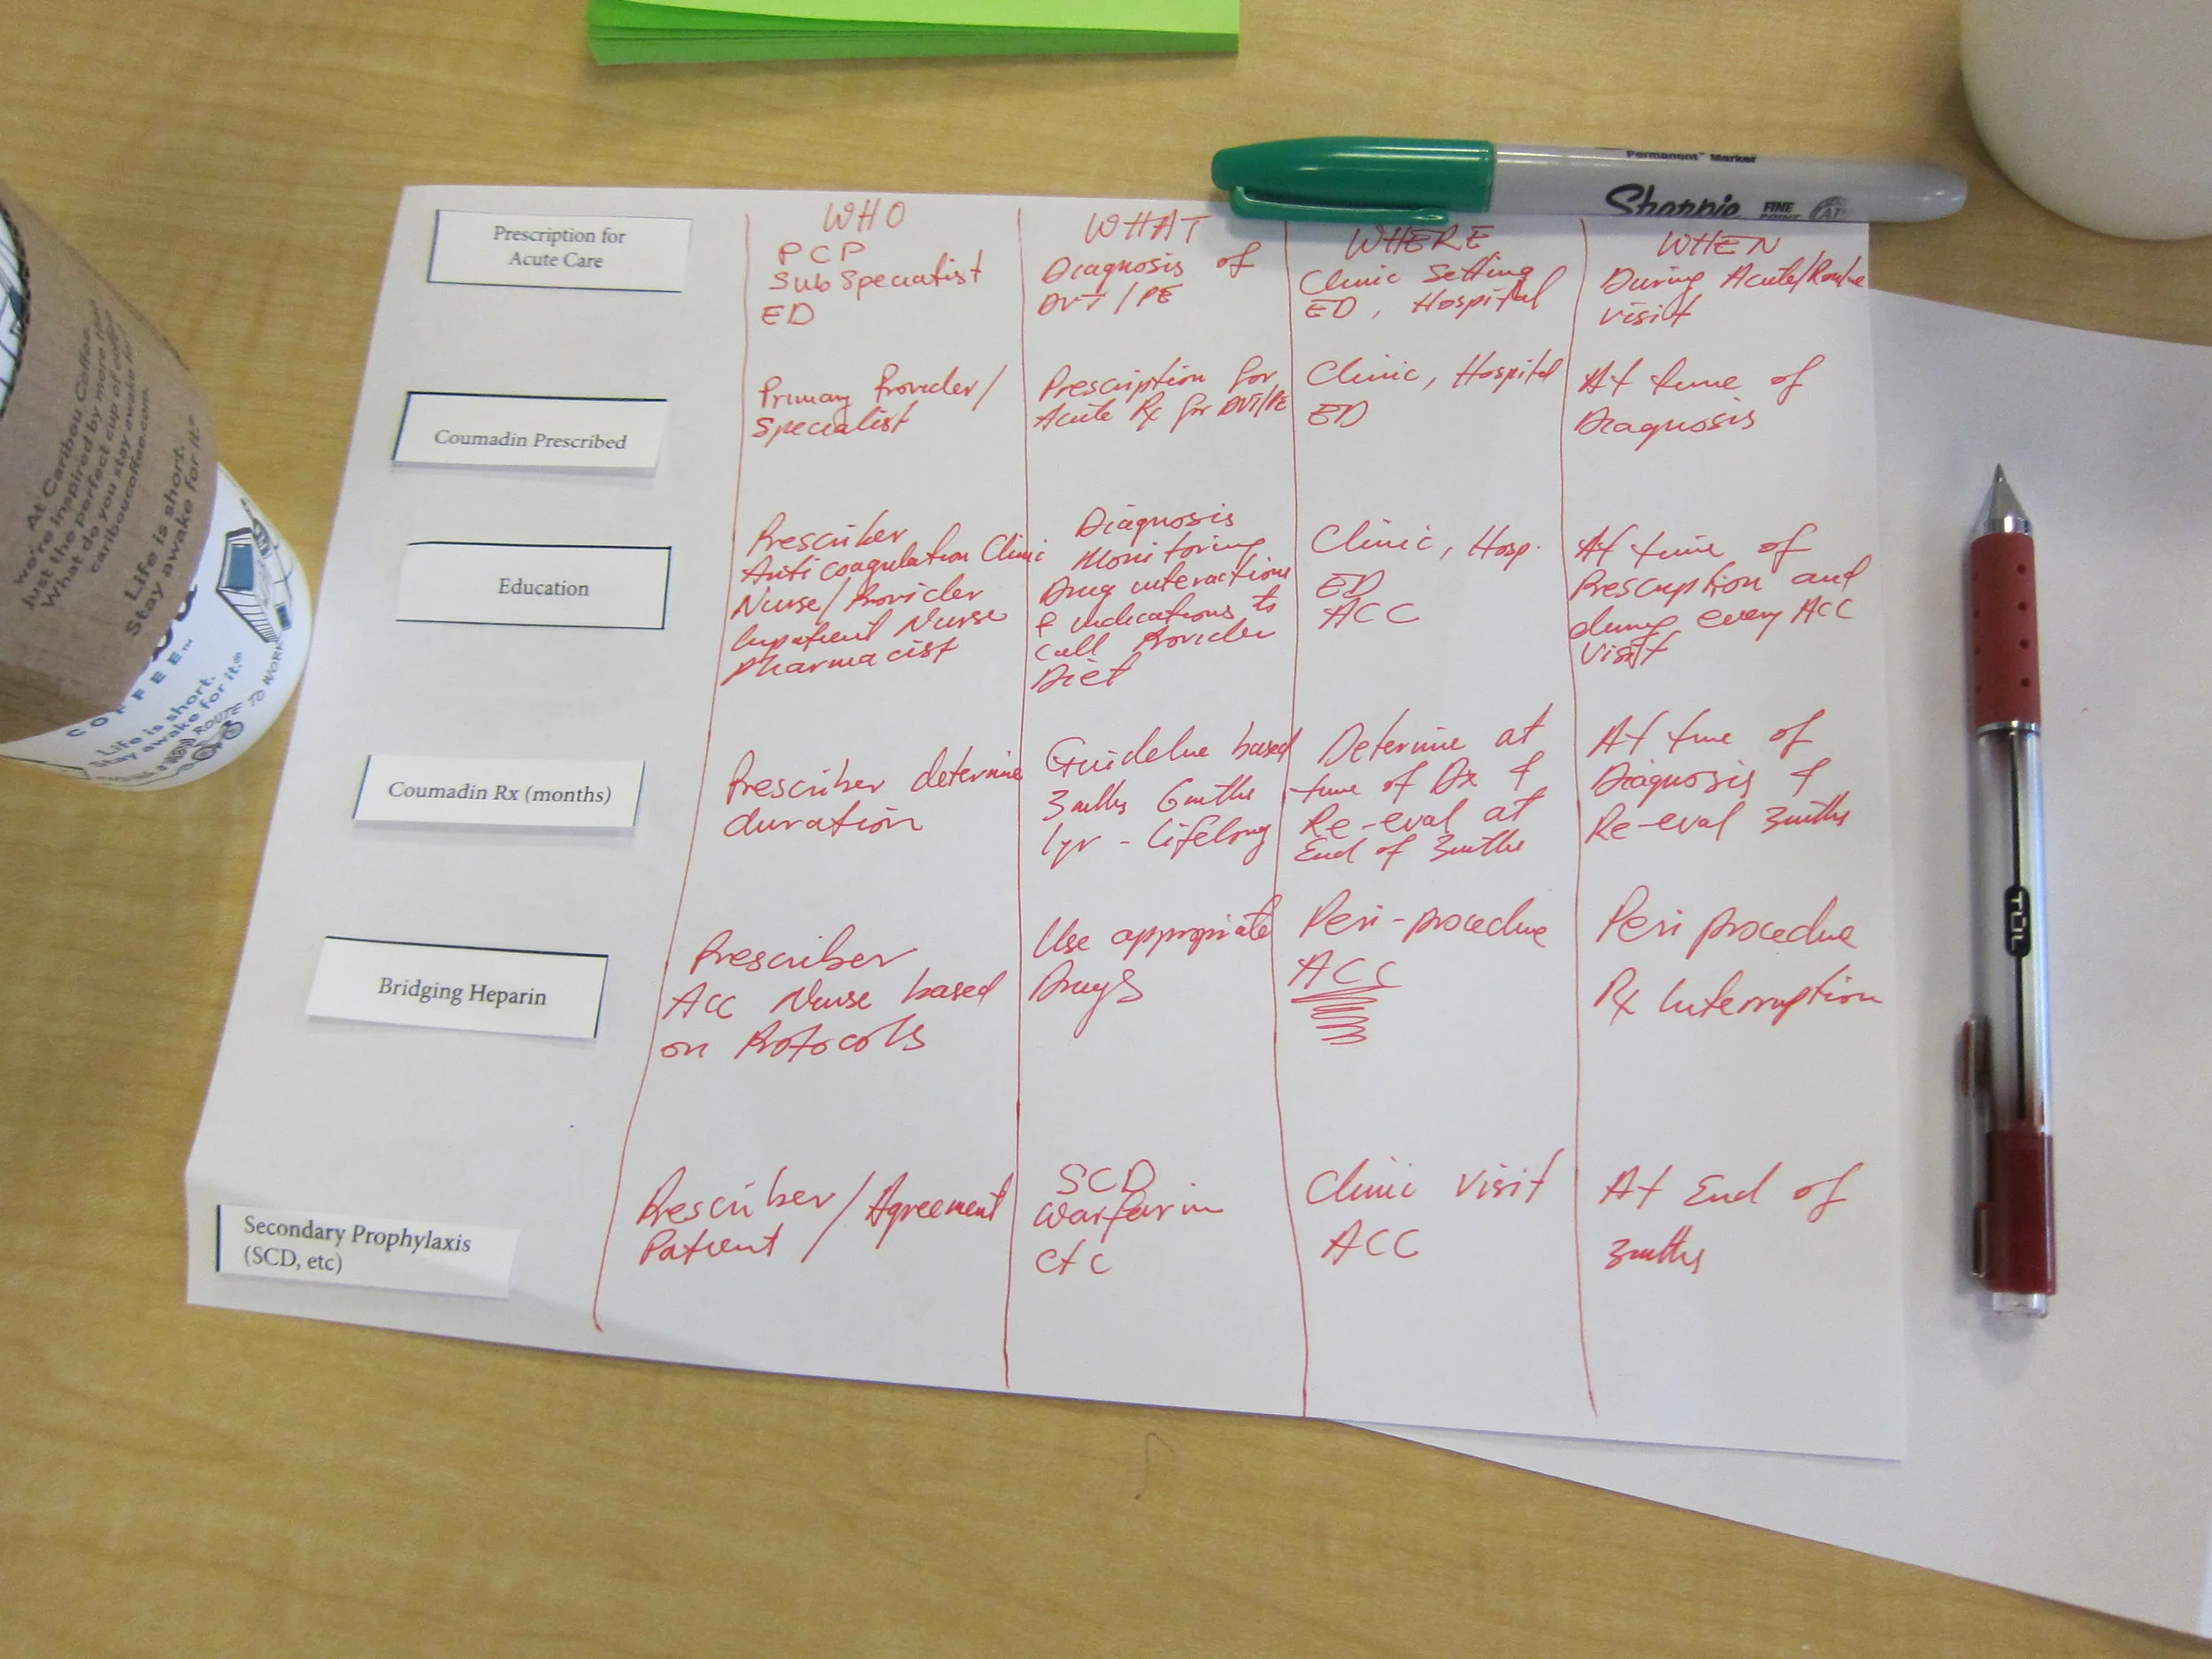 Permanent Marker
Sharpie FINE POINT
WHO WHAT WHERE WHEN
Prescription for
Acute Care
PCP
Sub Specialist
ED
Diagnosis of
DVT / PE
Clinic Setting
ED, Hospital
During Acute/Routine
visit
Coumadin Prescribed
Primary Provider/
Specialist
Prescription for
Acute Rx for DVT/PE
Clinic, Hospital
ED
At time of
Diagnosis
Education
Prescriber
Anticoagulation Clinic
Nurse/Provider
Inpatient Nurse
Pharmacist
Diagnosis
Monitoring
Drug interactions
& indications to
call Provider
Diet
Clinic, Hosp.
ED
ACC
At time of
Prescription and
during every ACC
visit
Coumadin Rx (months)
Prescriber determine
duration
Guideline based
3mths 6mths
1yr - Lifelong
Determine at
time of Dx &
Re-eval at
End of 3mths
At time of
Diagnosis &
Re-eval 3mths
Bridging Heparin
Prescriber
ACC Nurse based
on Protocols
Use appropriate
Drugs
Peri-procedure
ACC
Peri procedure
Rx Interruption
Secondary Prophylaxis
(SCD, etc)
Prescriber / Agreement
Patient
SCD
Warfarin
etc
Clinic visit
ACC
At End of
3mths
TÜL
At Caribou Coffee,
we're inspired by more than
just the perfect cup of coffee.
What do you stay awake for?
cariboucoffee.com.
Life is short.
Stay awake for it.®
COFFEE™
Life is short.
Stay awake for it.®
ROUTE TO WORK